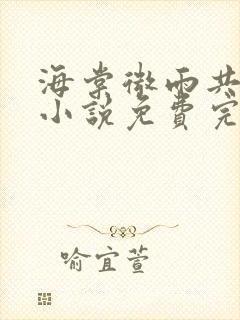 海棠微雨共
小说免费完
喻宜萱